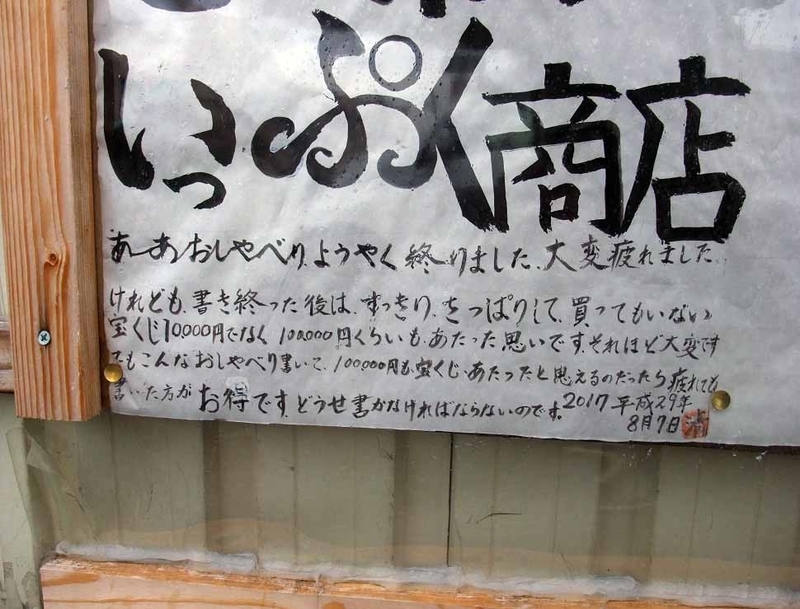 いっぷく商店
あーあおしゃべり、ようやく終りました、大変疲れました、
けれども、書き終った後は、すっきり、さっぱりして、買ってもいない
宝くじ10,000円でなく、100,000円くらいも、あたった思いです、それほど大変です
でもこんなおしゃべり書いて、100,000円も宝くじ、あたったと思えるのだったら疲れても
書いた方がお得です、どうせ書かなければならないのです。2017平成29年
8月7日